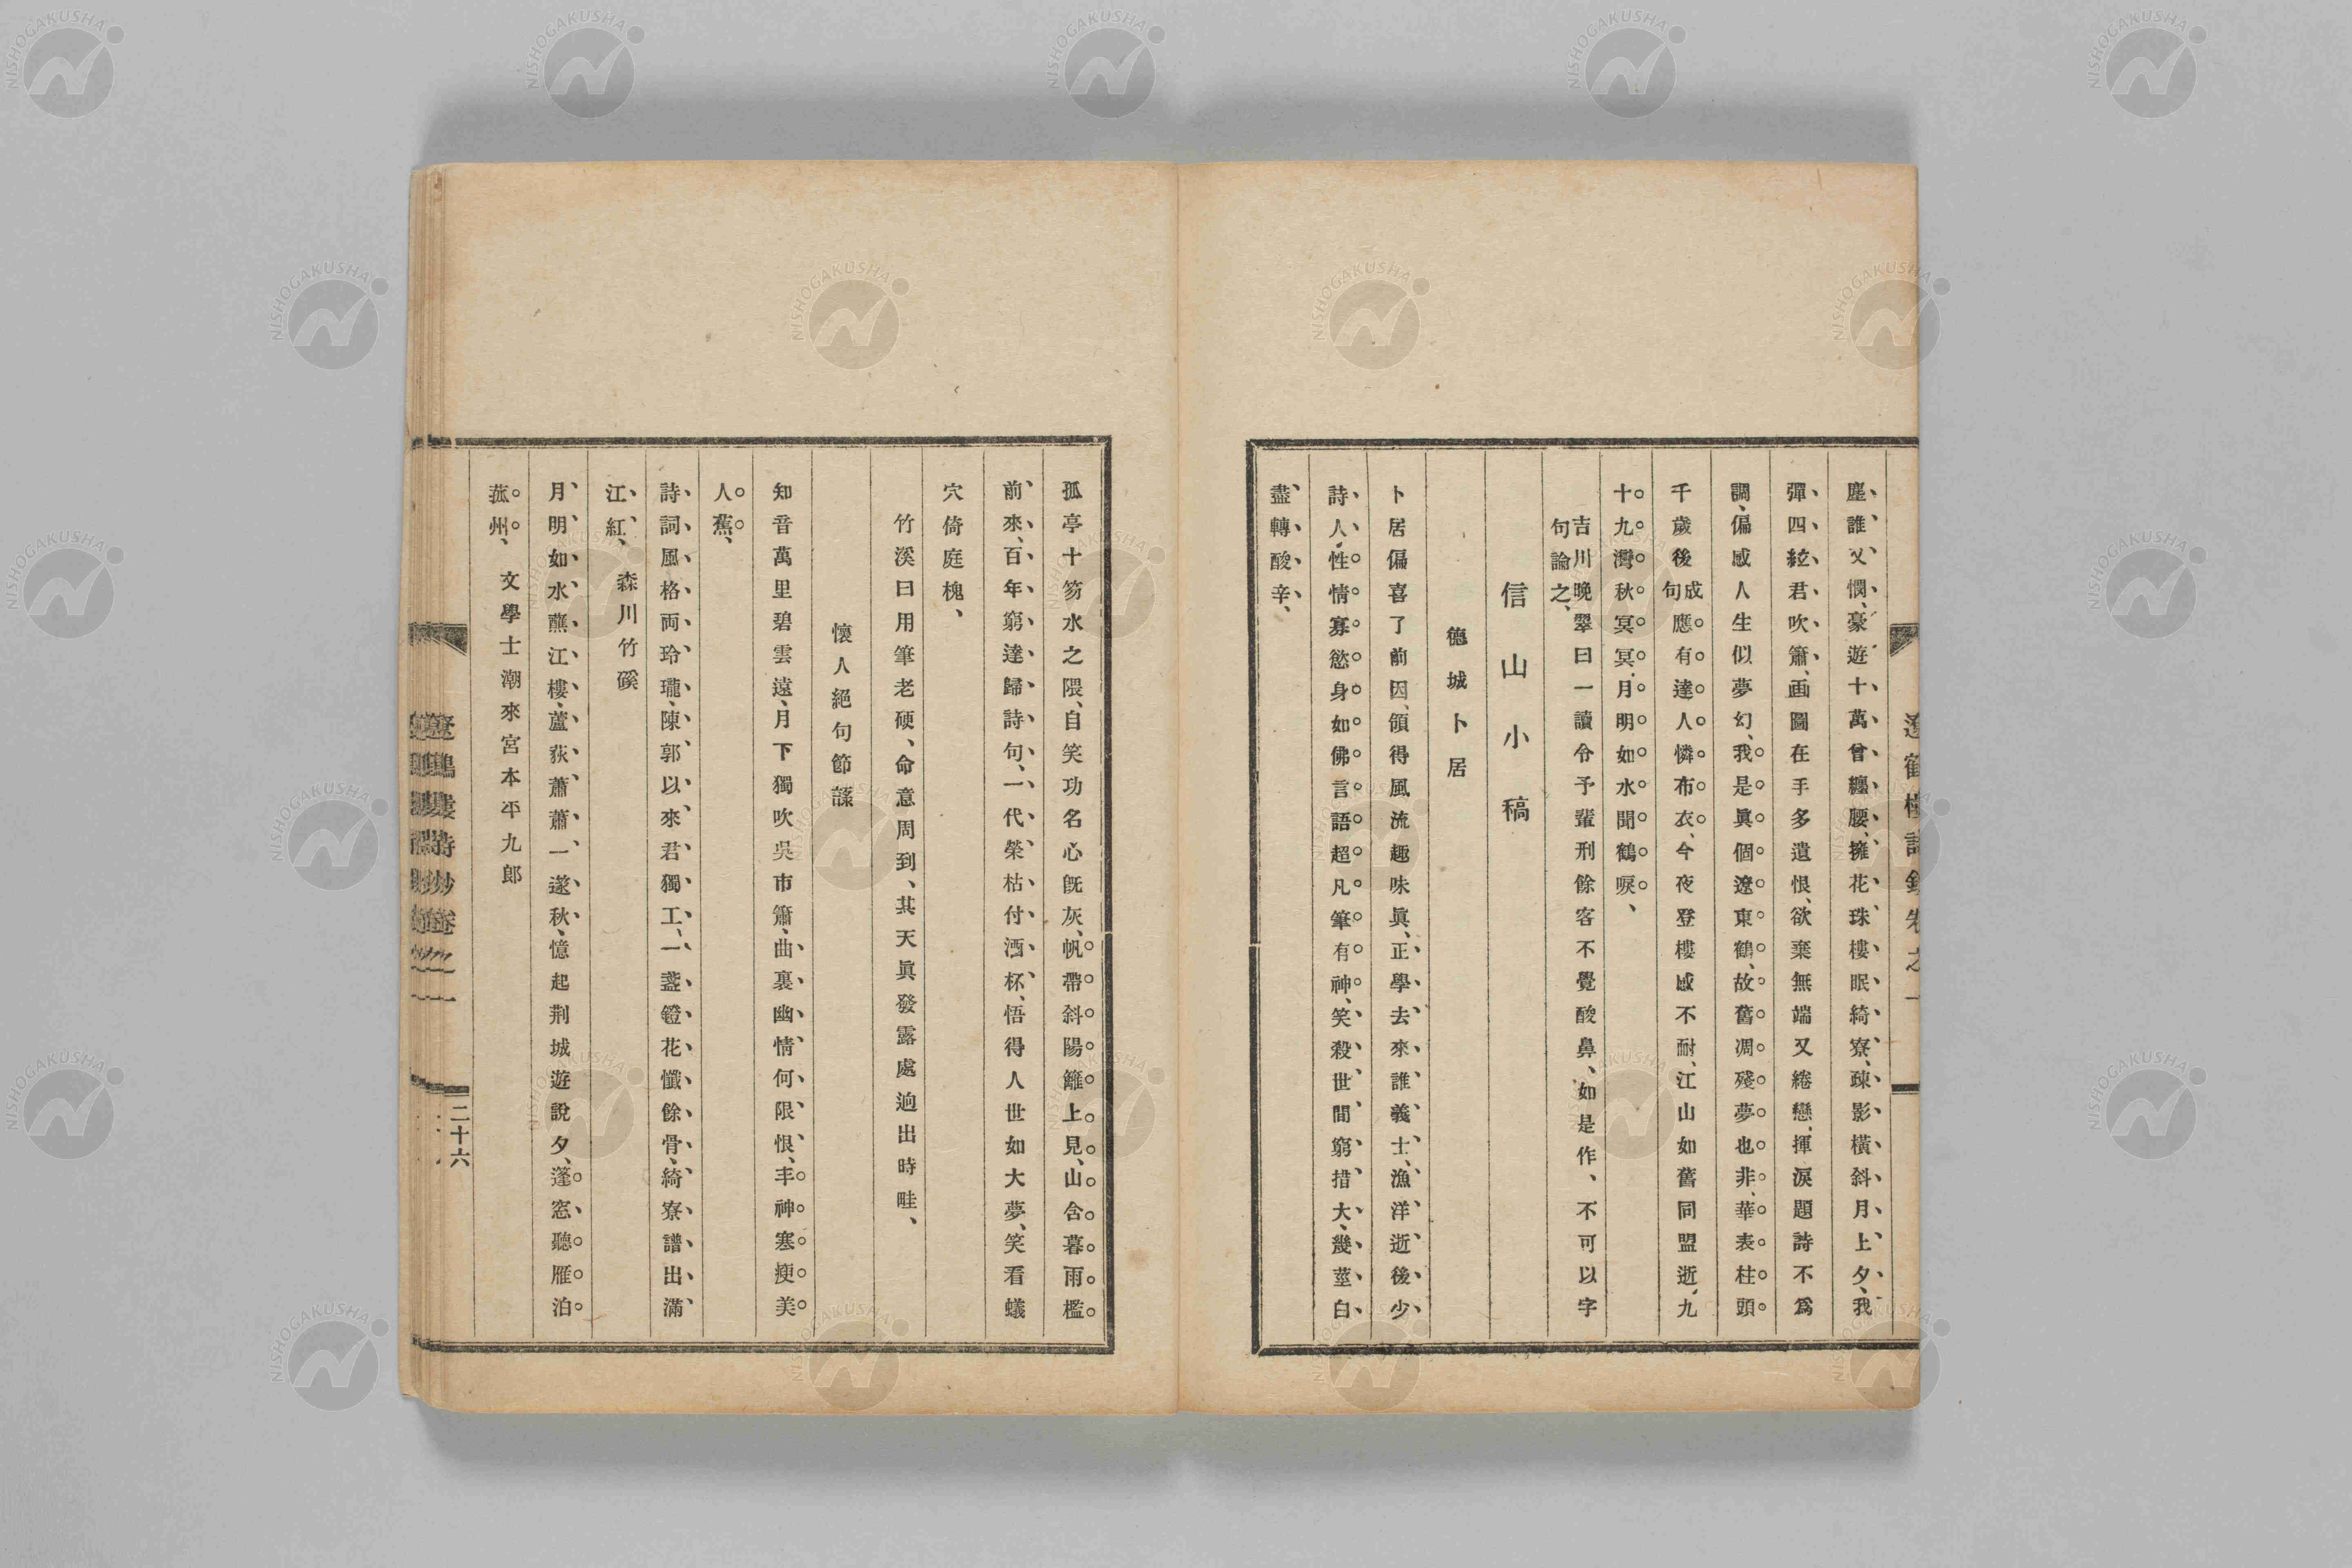 塵、誰又憫、豪遊十萬曾纏腰、擁花珠樓眠綺寮、疎影橫斜月上夕、我
彈四絃君吹簫、画圖在手多遺恨、欲棄無端又綣戀、揮淚題詩不爲
調、偏感人生似夢幻、我是眞個遼東鶴、故舊凋殘夢也非、華表柱頭
千歲後成句應有達人憐布衣、今夜登樓感不耐、江山如舊同盟逝、九
十九灣秋冥冥、月明如水聞鶴唳、
吉川晚翠曰一讀令予輩刑餘客不覺酸鼻、如是作、不可以字
句論之、
信山小稿
德城卜居
卜居偏喜了前因、領得風流趣味眞、正學去來誰義士、漁洋逝後少
詩人、性情寡慾身如佛、言語超凡筆有神、笑殺世間窮措大、幾莖白
盡轉酸辛、
孤亭十笏水之隈、自笑功名心旣灰、帆帶斜陽籬上見、山含暮雨檻
前來、百年窮達歸詩句、一代榮枯付酒杯、悟得人世如大夢、笑看蟻
穴倚庭槐、
竹溪曰用筆老硬、命意周到、其天眞發露處逈出時畦、
懷人絕句節錄
知音萬里碧雲遠、月下獨吹吳市簫、曲裏幽情何限恨、丰神寒瘦美
人蕉、
詩詞風格両玲瓏、陳郭以來君獨工、一盞鐙花懺餘骨、綺寮譜出滿
江紅、 森川竹磎
月明如水蘸江樓、蘆荻蕭蕭一邃秋、憶起荆城遊說夕、蓬窓聽雁泊
菰州、 文學士潮來宮本平九郎
二十六